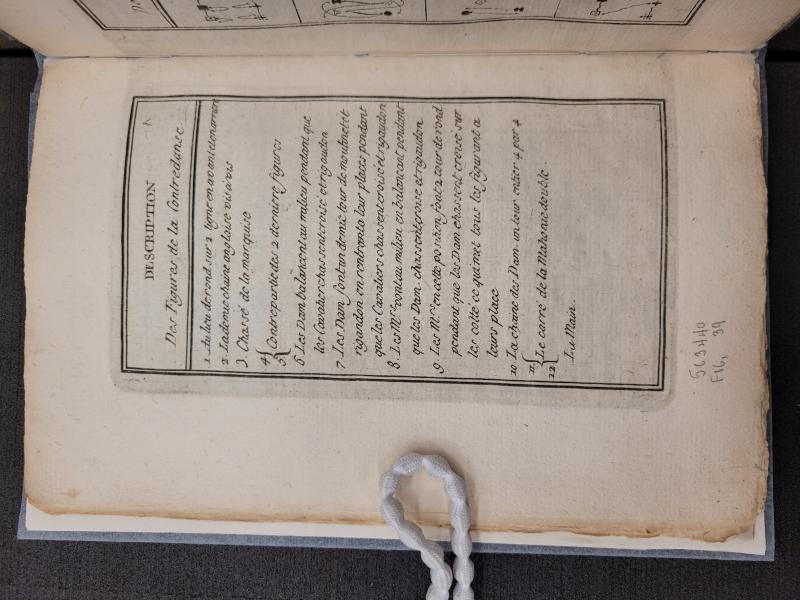 DESCRIPTION
Des Figures de la Contredanse
1. Au lieu de rond sur 2 ligne en avant et en arriere
2. La demie chaine anglaise vis a vis
3. Chassé de la marquise
4 { Contre partie des 2 derniere figures
5
6. Les Dam balancent au milieu pendant que
les Cavalier chassent croisé et rigaudon
7. Les Dam font un demie tour de moulinet et
rigaudon en rentrant a leur places pendant
que les Cavaliers chassent croisé et rigaudon
8. Les Mrs vont au milieu en balancant pendant
que les Dam. chassent croisé et rigaudon
9. Les Mrs en cette position font 2 tour de rond
pendant que les Dam chassent croisé sur
les coité ce qui met tous les figurant a
leurs place
10. La chaine des Dam. un tour entier 4 par 4
11. { Le carré de la Mahonie double.
12
La Main.
563440
F16, 39